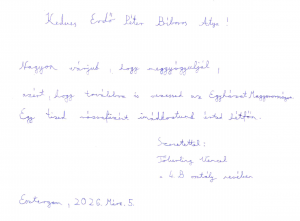 Kedves Erdő Péter Bíboros Atya!
Nagyon várjuk, hogy meggyógyuljál,
azért, hogy továbbra is vezesd az Egyházat Magyarországon.
Egy tized rózsafüzért imádkoztunk érted hittan.
Szeretettel:
Vencel
a 4.B osztály nevében
Esztergom, 2026. Márc. 5.